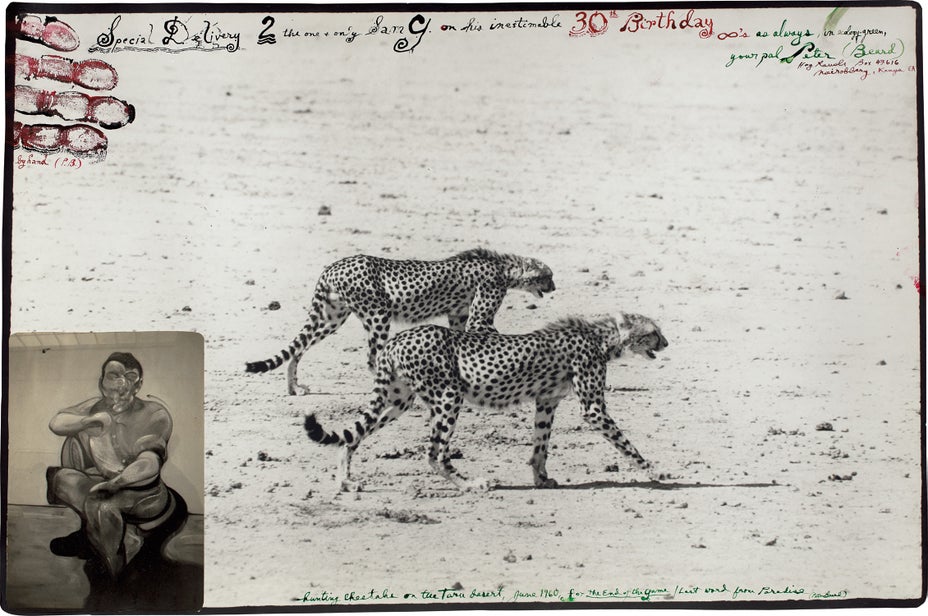 Special Delivery 2 the one & only Sam G. on his inestimable 30th Birthday
∞'s as always, in ecology-green,
your pal Peter (Beard)
Hog Ranch Box
Kenya EA
by hand (P.B.)
hunting cheetahs on the Taru desert, June 1960, for The End of the Game / Last word from Paradise